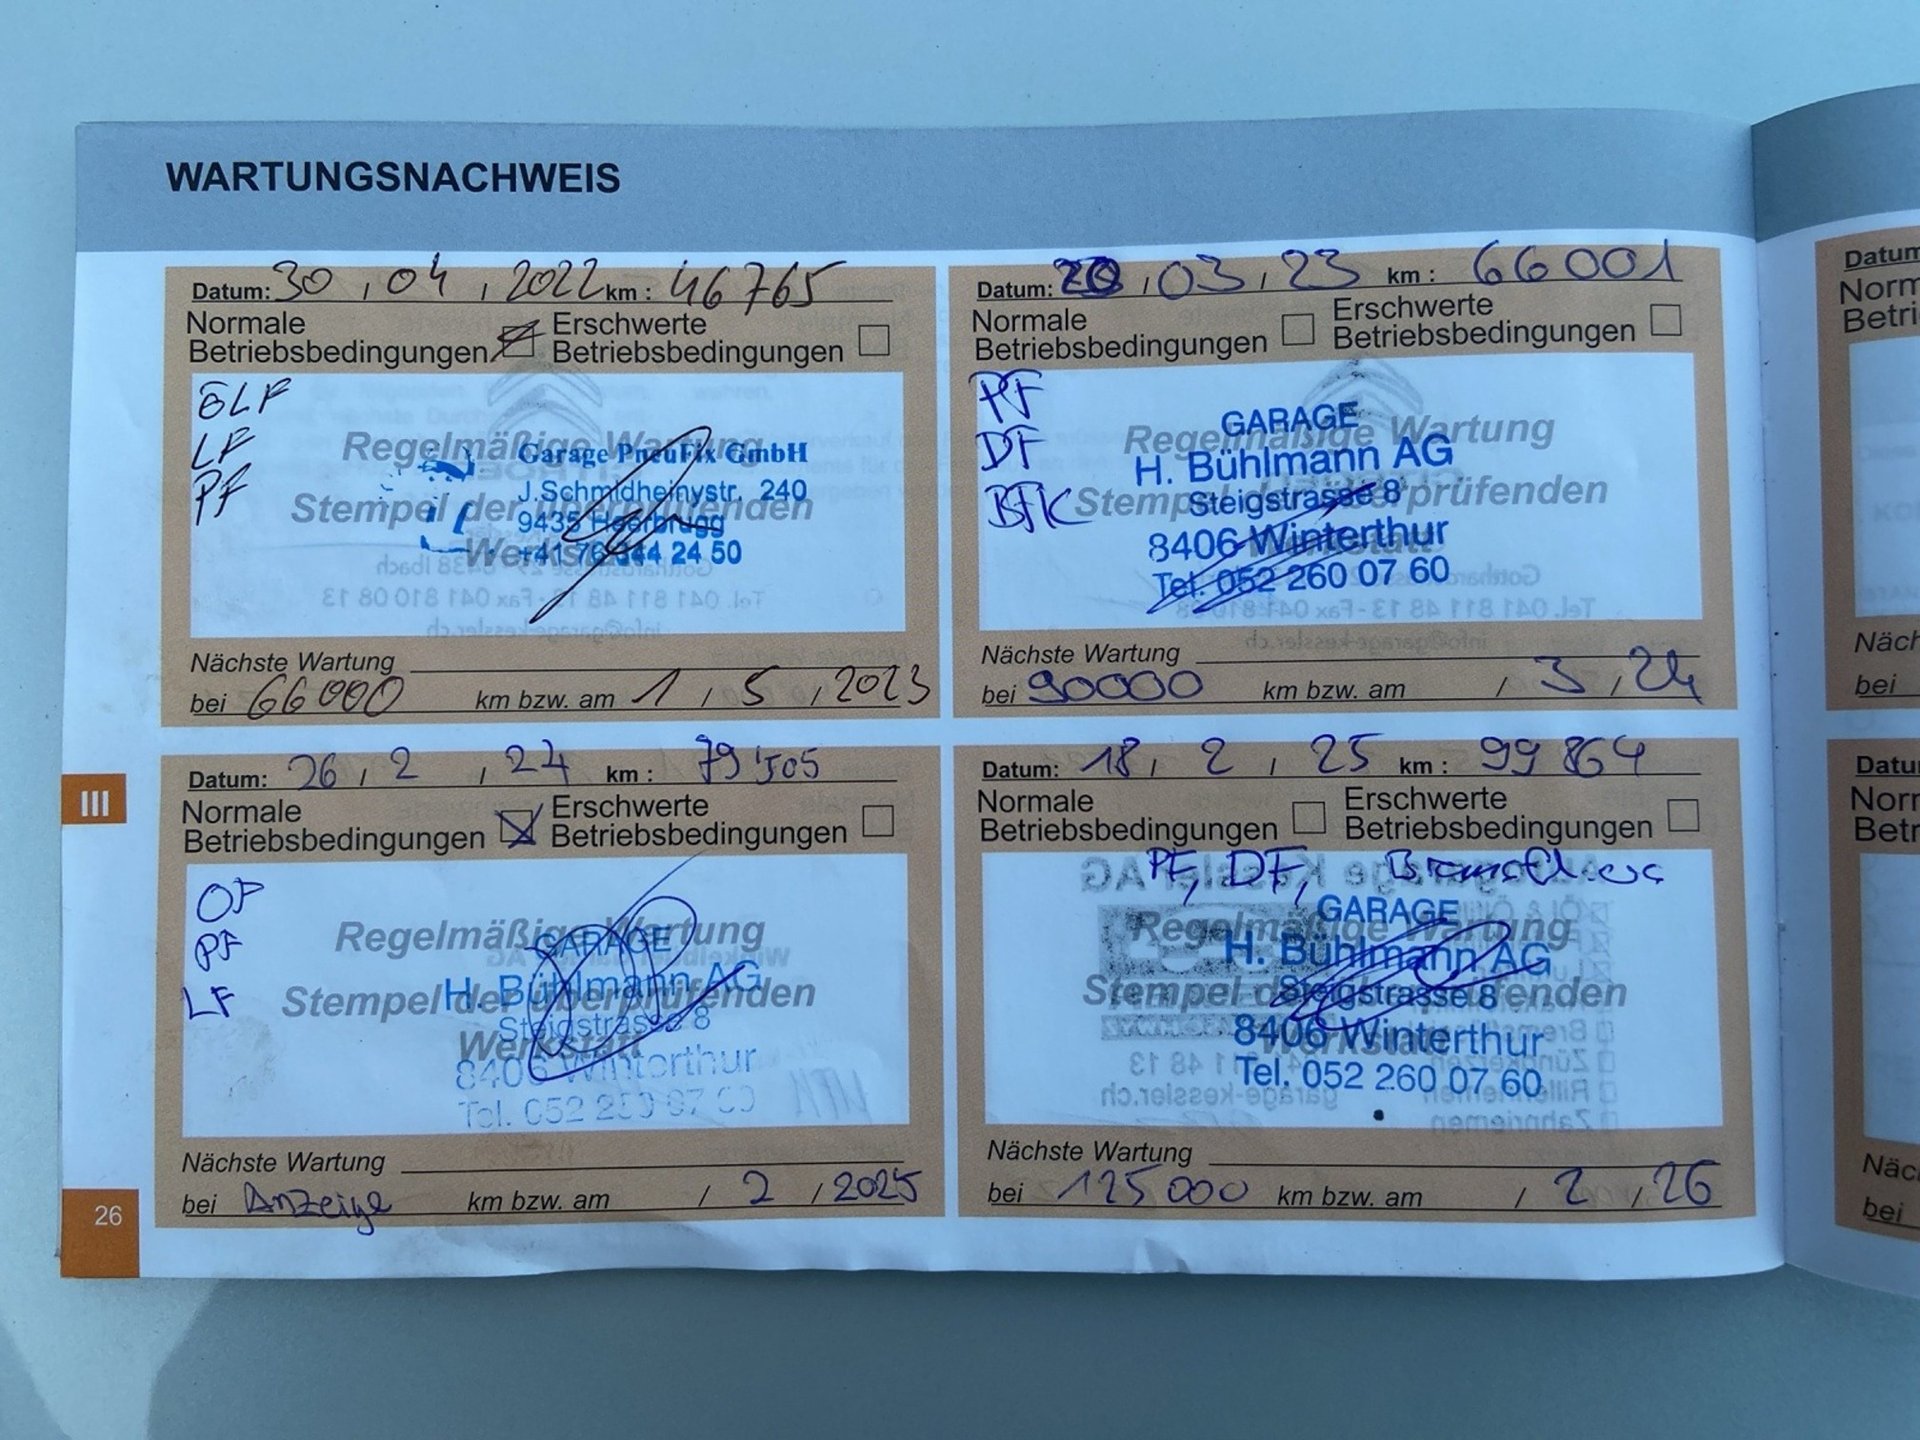 WARTUNGSNACHWEIS
Datum: 30 , 04 , 2022 km : 46765
Normale
Betriebsbedingungen
Erschwerte
Betriebsbedingungen
ÖLF
LF
PF
Regelmäßige Wartung
Stempel der überprüfenden
Werkstatt
Garage PneuFix GmbH
J.Schmidheinystr. 240
9435 Heerbrugg
+41 76 344 24 50
Nächste Wartung
bei 66000 km bzw. am 1 / 5 , 2023
Datum: 20 , 03 , 23 km : 66001
Normale
Betriebsbedingungen
Erschwerte
Betriebsbedingungen
PF
DF
BFK
Regelmäßige Wartung
Stempel der überprüfenden
Werkstatt
GARAGE
H. Bühlmann AG
Steigstrasse 8
8406 Winterthur
Tel. 052 260 07 60
Nächste Wartung
bei 90000 km bzw. am / 3 , 24
III
Datum: 26 , 2 , 24 km : 79'505
Normale
Betriebsbedingungen
Erschwerte
Betriebsbedingungen
OF
PF
LF
Regelmäßige Wartung
Stempel der überprüfenden
Werkstatt
GARAGE
H. Bühlmann AG
Steigstrasse 8
8406 Winterthur
Tel. 052 260 07 60
Nächste Wartung
bei Anzeige km bzw. am / 2 , 2025
Datum: 18 , 2 , 25 km : 99864
Normale
Betriebsbedingungen
Erschwerte
Betriebsbedingungen
PF, DF,
Regelmäßige Wartung
Stempel der überprüfenden
Werkstatt
GARAGE
H. Bühlmann AG
Steigstrasse 8
8406 Winterthur
Tel. 052 260 07 60
Nächste Wartung
bei 125000 km bzw. am / 2 , 26
26